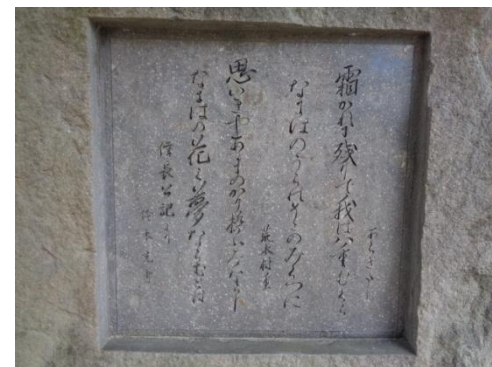 あらきだし
霜かれに残りて我は八重むくら
なにはのうらのそこのみくつに
荒木村重
思いきやあまのかけ橋ふみならし
なにはの花も夢ならむとは
信長公記より